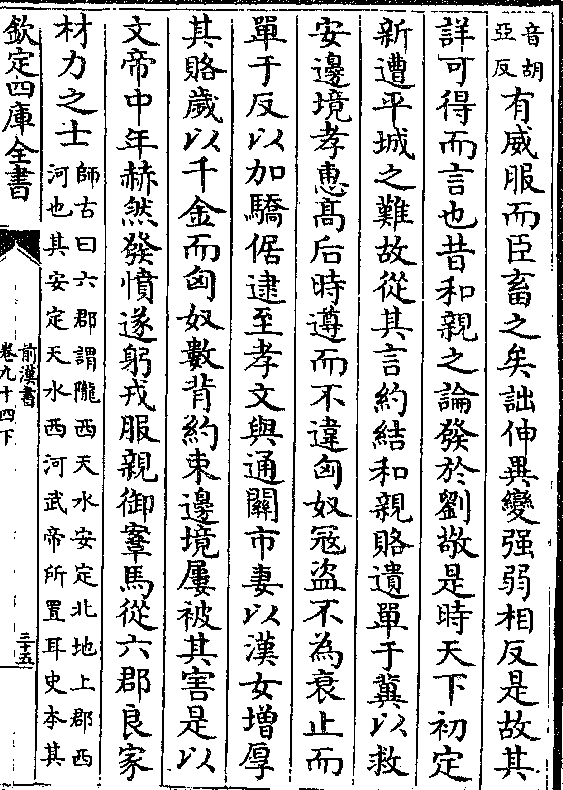 音胡
亞反
有威服而臣畜之矣詘伸異變强弱相反是故其
詳可得而言也昔和親之論發於劉敬是時天下初定
新遭平城之難故從其言約結和親賂遺單于冀以救
安邊境孝惠髙后時遵而不違匈奴冦盜不為衰止而
單于反以加驕倨逮至孝文與通關市妻以漢女增厚
其賂歲以千金而匈奴數背約束邊境屢被其害是以
文帝中年赫然發憤遂躬戎服親御鞌馬從六郡良家
材力之士
師古曰六郡謂隴西天水安定北地上郡西
河也其安定天水西河武帝所置耳史本其
欽定四庫全書
前漢書
卷九十四下
三十五